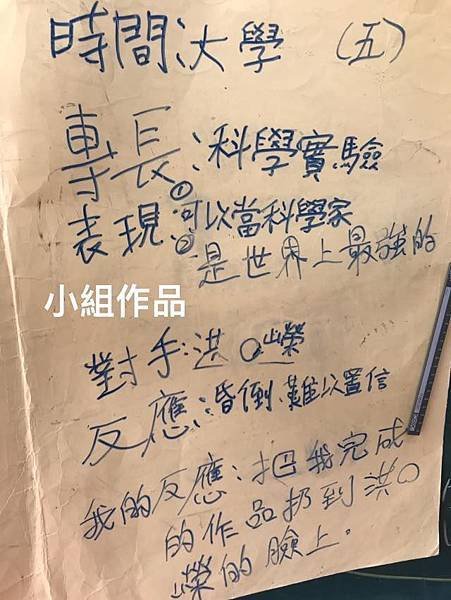 時間大學 (五)
專長:科學實驗
表現:①可以當科學家
②是世界上最強的
小組作品
對手:洪〇嶸
反應:昏倒、難以置信
我的反應:把我完成
的作品扔到洪〇
嶸的臉上。